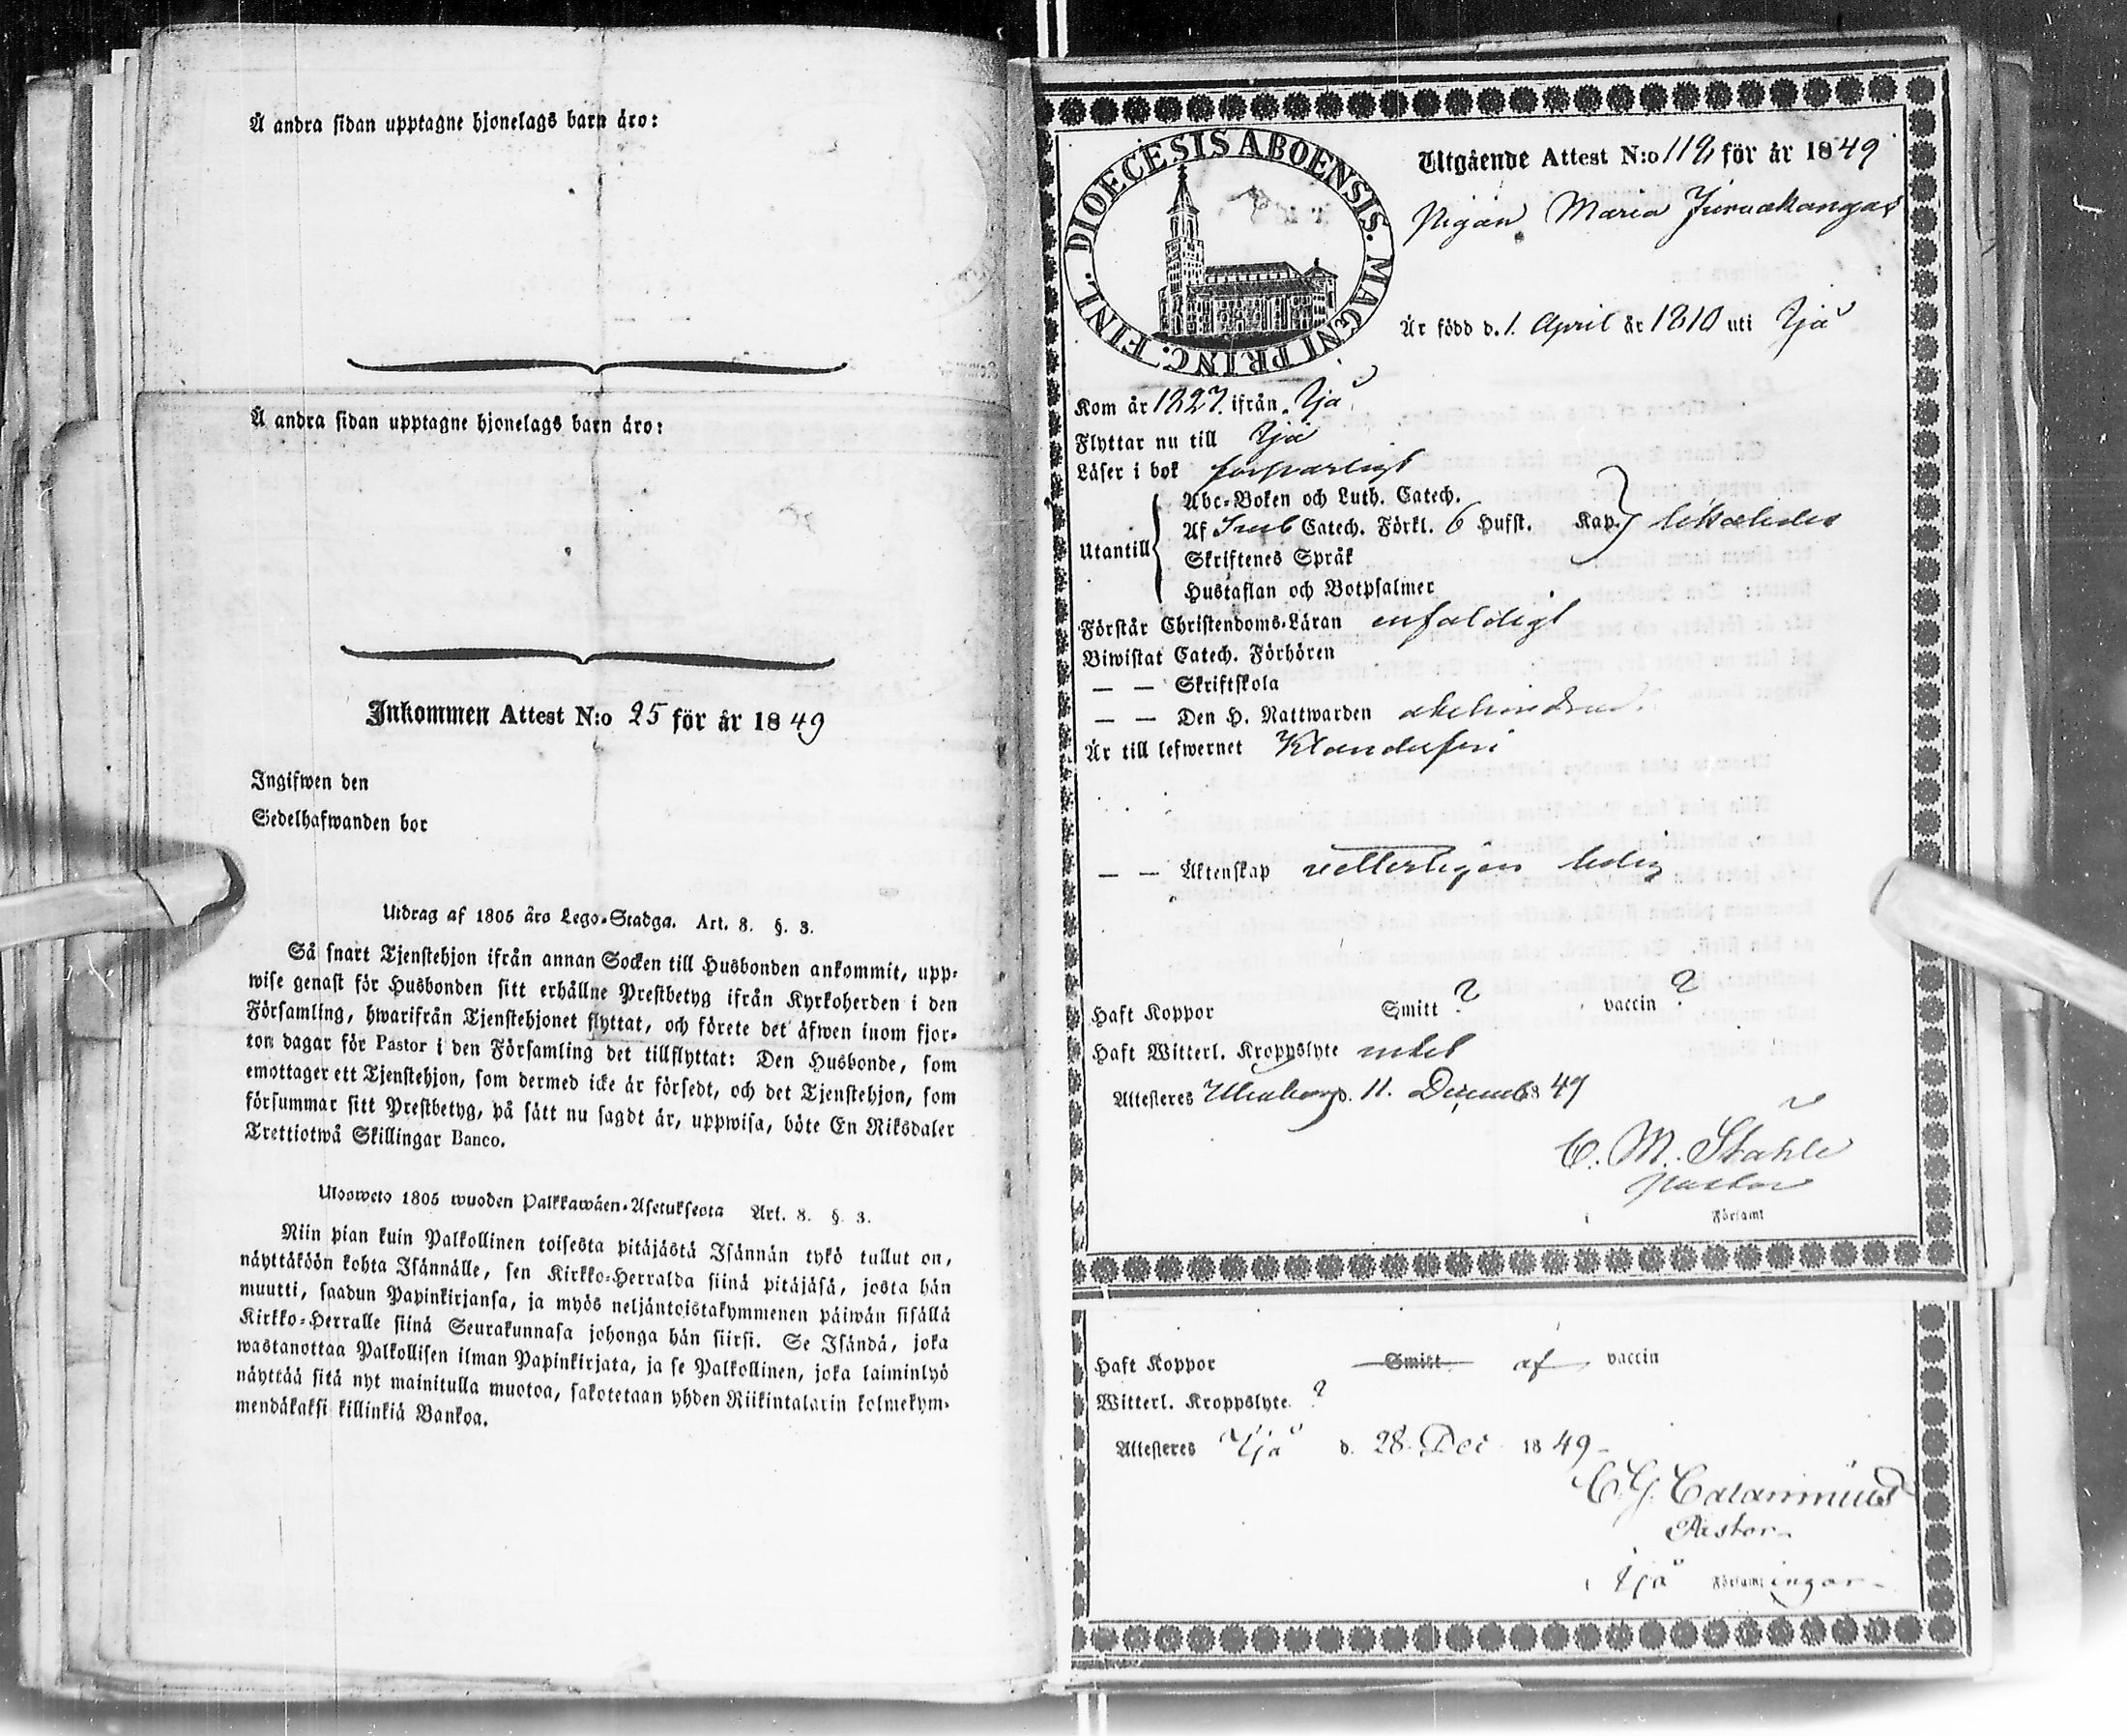 Å andra sidan upptagne hjonelags barn äro:
Å andra sidan upptagne hjonelags barn äro:
Inkommen Attest N:o 25 för år 1849
Ingifwen den
Sedelhafwanden bor
Utdrag af 1805 års Lego-Stadga. Art. 8. §. 3.
Så snart Tjenstehjon ifrån annan Socken till Husbonden ankommit, upp-
wise genast för Husbonden sitt erhållne Prestbetyg ifrån Kyrkoherden i den
Församling, hwarifrån Tjenstehjonet flyttat, och förete det äfwen inom fjor-
ton dagar för Pastor i den Församling det tillflyttat: Den Husbonde, som
emottager ett Tjenstehjon, som dermed icke är försedt, och det Tjenstehjon, som
försummar sitt Prestbetyg, på sätt nu sagdt är, uppwisa, böte En Riksdaler
Trettiotwå Skillingar Banco.
Ulosweto 1805 wuoden Palkkawäen-Asetuksesta Art. 8. §. 3.
Niin pian kuin Palkollinen toisesta pitäjästä Isännän tykö tullut on,
näyttäköön kohta Isännälle, sen Kirkko-Herralda siinä pitäjäsä, josta hän
muutti, saadun Papinkirjansa, ja myös neljäntoistakymmenen päiwän sisällä
Kirkko-Herralle siinä Seurakunnasa johonga hän siirsi. Se Isändä, joka
wastanottaa Palkollisen ilman Papinkirjata, ja se Palkollinen, joka laiminlyö
näyttää sitä nyt mainitulla muotoa, sakotetaan yhden Riikintalarin kolmekym-
mendäkaksi killinkiä Bankoa.
DIOECESIS ABOENSIS. MAGNI PRINC. FINL.
Utgående Attest N:o 112, för år 1849
Pigan Maria
Är född d. 1. April år 1810 uti Ijå
Kom år 1827. ifrån Ijå
Flyttar nu till Ijå
Läser i bok försvarligt
Utantill
Abc-Boken och Luth. Catech.
Af Catech. Förkl. 6 Hufst. Kap.
Skriftenes Språk
Hustaflan och Botpsalmer
Förstår Christendoms-Läran enfaldigt
Biwistat Catech. Förhören
— — Skriftskola
— — Den H. Nattwarden
Är till lefwernet Klanderfri
— — Äktenskap vetterligen ledig
Haft Koppor Smitt ? vaccin ?
Haft Witterl. Kroppslyte intet
Attesteres Uleaborg d. 11. Decemb 1849
C. M. Ståhle
Pastor
i Församl
Haft Koppor Smitt af vaccin
Witterl. Kroppslyte ?
Attesteres Ijå d. 28. Dec 1849
C. G. Calamnius
Pastor
i Ijå Församlingar